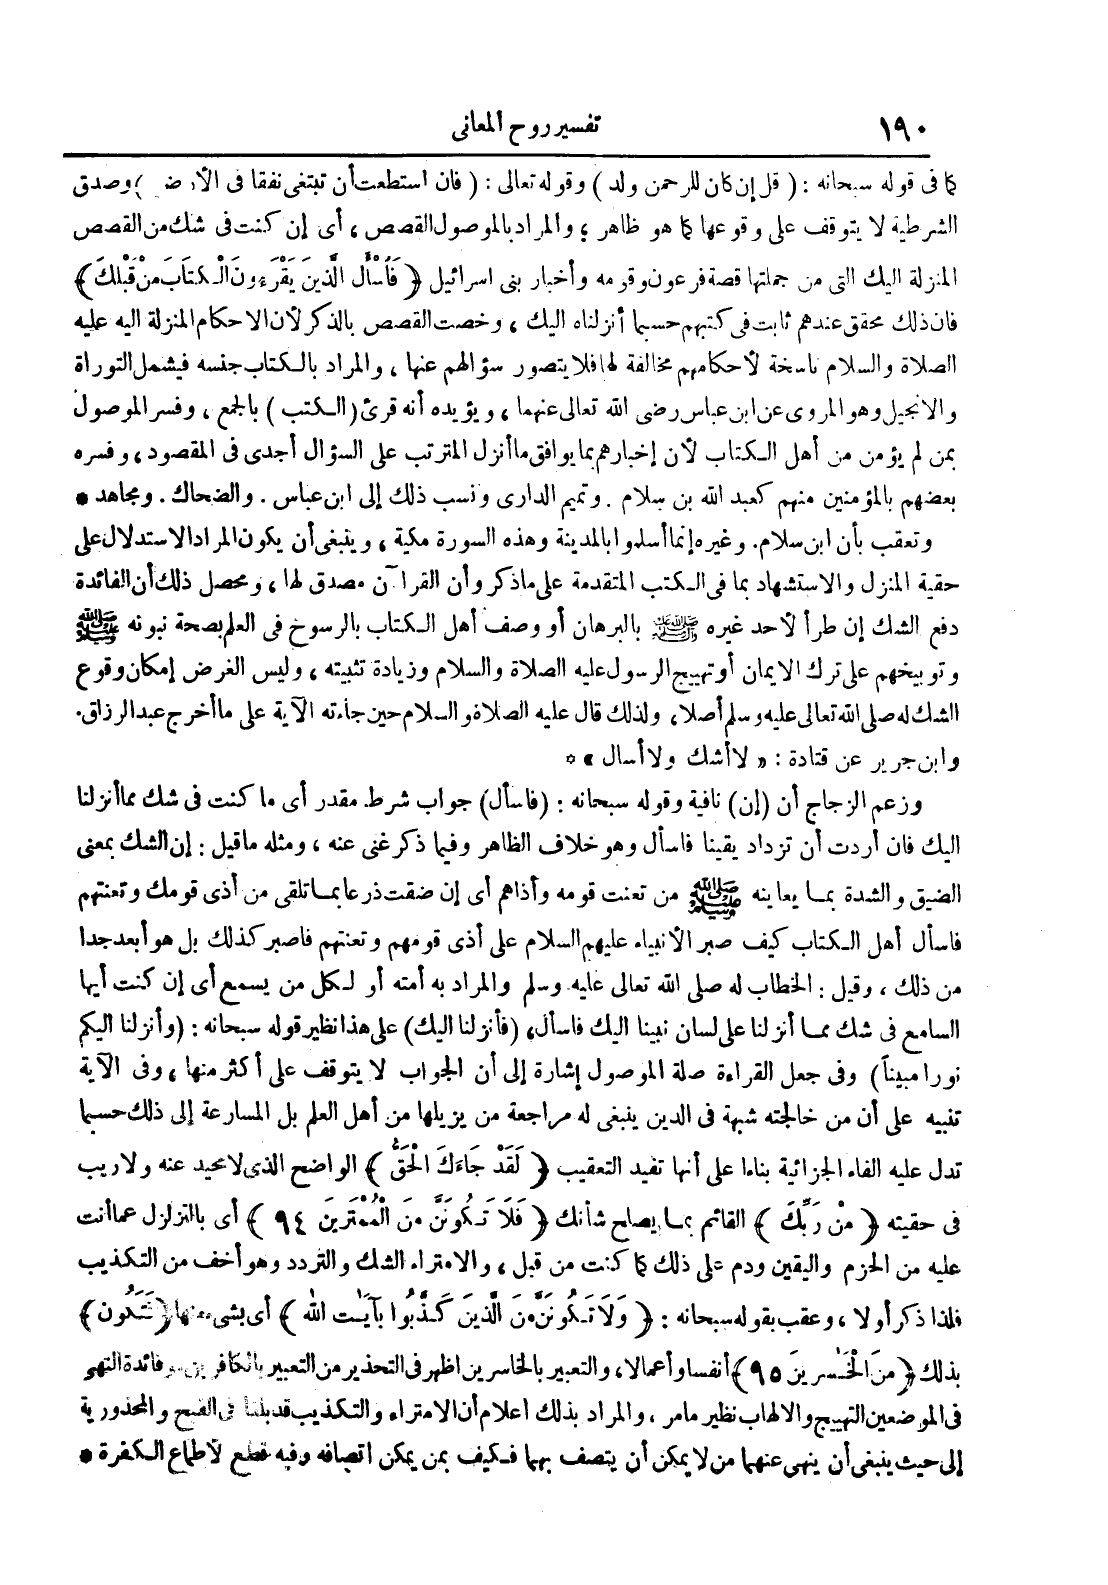 ١٩٠ تفسير روح المعانى
كما فى قوله سبحانه : ( قل إن كان للرحمن ولد ) وقوله تعالى : ( فان استطعت أن تبتغى نفقا فى الأرض ) وصدق
الشرطية لا يتوقف على وقوعها كما هو ظاهر ؛ والمراد بالموصول القصص ، أى إن كنت فى شك من القصص
المنزلة اليك التى من جملتها قصة فرعون وقومه وأخبار بنى اسرائيل ﴿ فَاسْأَلِ الَّذينَ يَقْرَءونَ الْكتَابَ منْ قَبْلكَ ﴾
فان ذلك محقق عندهم ثابت فى كتبهم حسبما أنزلناه اليك ، وخصت القصص بالذكر لأن الاحكام المنزلة اليه عليه
الصلاة والسلام ناسخة لأحكامهم مخالفة لها فلا يتصور سؤالهم عنها ، والمراد بالكتاب جنسه فيشمل التوراة
والانجيل وهو المروى عن ابن عباس رضى الله تعالى عنهما ، ويؤيده أنه قرئ ( الكتب ) بالجمع ، وفسر الموصول
بمن لم يؤمن من أهل الكتاب لأن إخبارهم بما يوافق ما أنزل المترتب على السؤال أجدى فى المقصود ، وفسره
بعضهم بالمؤمنين منهم كعبد الله بن سلام . وتميم الدارى ونسب ذلك إلى ابن عباس . والضحاك . ومجاهد *
وتعقب بأن ابن سلام. وغيره إنما أسلموا بالمدينة وهذه السورة مكية ، وينبغى أن يكون المراد الاستدلال على
حقية المنزل والاستشهاد بما فى الكتب المتقدمة على ماذكر وأن القرآن مصدق لها ، ومحصل ذلك أن الفائدة
دفع الشك إن طرأ لأحد غيره ﷺ بالبرهان أو وصف أهل الكتاب بالرسوخ فى العلم بصحة نبوته ﷺ
وتوبيخهم على ترك الايمان أو تهييج الرسول عليه الصلاة والسلام وزيادة تثبيته ، وليس الغرض إمكان وقوع
الشك له صلى الله تعالى عليه وسلم أصلا، ولذلك قال عليه الصلاة والسلام حين جاءته الآية على ما أخرج عبد الرزاق.
وابن جرير عن قتادة : « لا أشك ولا أسال » *
وزعم الزجاج أن (إن) نافية وقوله سبحانه : (فاسأل) جواب شرط مقدر أى ما كنت فى شك مما أنزلنا
اليك فان أردت أن تزداد يقينا فاسأل وهو خلاف الظاهر وفيما ذكر غنى عنه ، ومثله ماقيل : إن الشك بمعنى
الضيق والشدة بما يعاينه ﷺ من تعنت قومه وأذاهم أى إن ضقت ذرعا بما تلقى من أذى قومك وتعنتهم
فاسأل أهل الكتاب كيف صبر الأنبياء عليهم السلام على أذى قومهم وتعنتهم فاصبر كذلك بل هو أبعد جدا
من ذلك ، وقيل : الخطاب له صلى الله تعالى عليه وسلم والمراد به أمته أو لكل من يسمع أى إن كنت أيها
السامع فى شك مما أنزلنا على لسان نبينا اليك فاسأل، (فأنزلنا اليك) على هذا نظير قوله سبحانه : (وأنزلنا اليكم
نورا مبيناً) وفى جعل القراءة صلة الموصول إشارة إلى أن الجواب لا يتوقف على أكثر منها ، وفى الآية
تنبيه على أن من خالجته شبهة فى الدين ينبغى له مراجعة من يزيلها من أهل العلم بل المسارعة إلى ذلك حسبما
تدل عليه الفاء الجزائية بناءا على أنها تفيد التعقيب ﴿ لَقَدْ جَاءَكَ الْحَقُّ ﴾ الواضح الذى لامحيد عنه ولاريب
فى حقيته ﴿ منْ رَبِّكَ ﴾ القائم بما يصلح شأنك ﴿ فَلَا تَكُونَنَّ منَ الْمُمْتَرينَ ٩٤ ﴾ أى بالتزلزل عما أنت
عليه من الحزم واليقين ودم على ذلك كما كنت من قبل ، والامتراء الشك والتردد وهو أخف من التكذيب
فلذا ذكر أولا ، وعقب بقوله سبحانه : ﴿ وَلَا تَكُونَنَّ منَ الَّذينَ كَذَّبُوا بآيَات الله ﴾ أى بشىء منها ﴿ فَتَكُونَ ﴾
بذلك ﴿ منَ الْخَسرينَ ٩٥ ﴾ أنفسا وأعمالا، والتعبير بالخاسرين اظهر فى التحذير من التعبير بالكافرين وفائدة النهى
فى الموضعين التهييج والالهاب نظير مامر ، والمراد بذلك اعلام أن الامتراء والتكذيب قد بلغا فى القبح والمحذورية
إلى حيث ينبغى أن ينهى عنهما من لا يمكن أن يتصف بهما فكيف بمن يمكن اتصافه وفيه قطع لأطماع الكفرة *